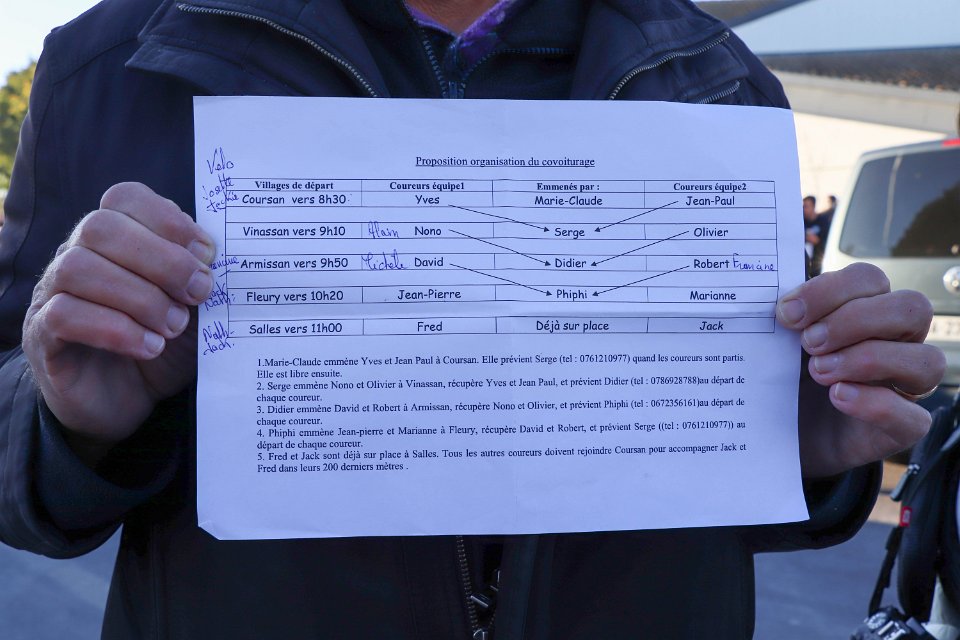 Proposition organisation du covoiturage
Velo
Josette
Jackie
Villages de départ Coureurs équipe1 Emmenés par : Coureurs équipe2
Coursan vers 8h30 Yves Marie-Claude Jean-Paul
Vinassan vers 9h10 Alain Nono Serge Olivier
Armissan vers 9h50 Michele David Didier Robert Francine
Fleury vers 10h20 Jean-Pierre Phiphi Marianne
Salles vers 11h00 Fred Déjà sur place Jack
1.Marie-Claude emmène Yves et Jean Paul à Coursan. Elle prévient Serge (tel : 0761210977) quand les coureurs sont partis.
Elle est libre ensuite.
2. Serge emmène Nono et Olivier à Vinassan, récupère Yves et Jean Paul, et prévient Didier (tel : 0786928788)au départ de
chaque coureur.
3. Didier emmène David et Robert à Armissan, récupère Nono et Olivier, et prévient Phiphi (tel : 0672356161)au départ de
chaque coureur.
4. Phiphi emmène Jean-pierre et Marianne à Fleury, récupère David et Robert, et prévient Serge ((tel : 0761210977)) au
départ de chaque coureur.
5. Fred et Jack sont déjà sur place à Salles. Tous les autres coureurs doivent rejoindre Coursan pour accompagner Jack et
Fred dans leurs 200 derniers mètres .